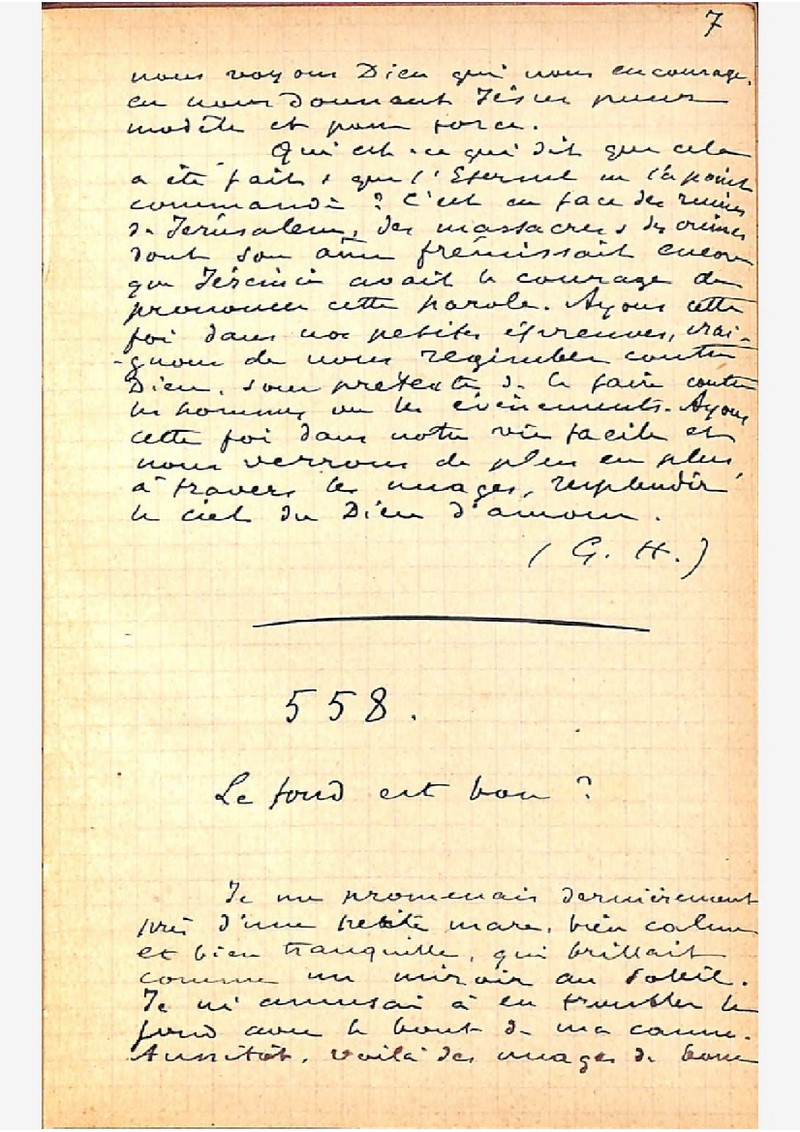 7
nous voyons Dieu qui nous encourage,
en nous donnant Jésus pour
modèle et pour force.
Qui est-ce qui dit que cela
a été fait, & que l'Eternel ne l'a point
commandé ? C'est en face des ruines
de Jérusalem, des massacres & des crimes
dont son âme frémissait encore
que Jérémie avait le courage de
prononcer cette parole. Ayons cette
foi dans nos petites épreuves, crai-
-gnons de nous regimber contre
Dieu, sous prétexte de le faire contre
les hommes ou les évènements. Ayons
cette foi dans notre vie facile et
nous verrons de plus en plus,
à travers les nuages, resplendir
le ciel du Dieu d'amour.
(G. H.)
558.
Le fond est bon ?
Je me promenais dernièrement
près d'une petite mare, bien calme
et bien tranquille, qui brillait
comme un miroir au soleil.
Je m'amusai à en troubler le
fond avec le bout de ma canne.
Aussitôt, voilà des nuages de boue